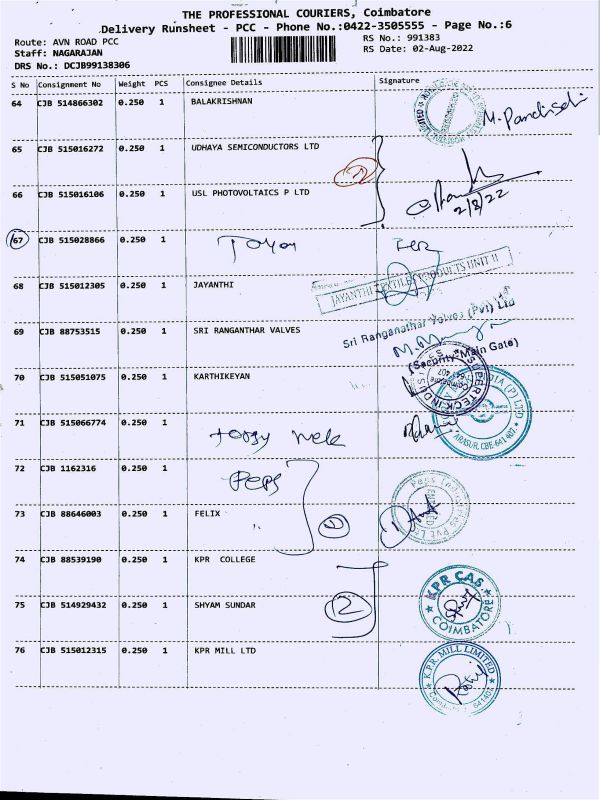 THE PROFESSIONAL COURIERS, Coimbatore
Delivery Runsheet - PCC - Phone No.:0422-3505555 - Page No.:6
Route: AVN ROAD PCC
RS No.: 991383
Staff: NAGARAJAN
RS Date: 02-Aug-2022
DRS No.: DCJB99138306
S No Consignment No Weight PCS Consignee Details Signature
64 CJB 514866302 0.250 1 BALAKRISHNAN
65 CJB 515016272 0.250 1 UDHAYA SEMICONDUCTORS LTD
66 CJB 515016106 0.250 1 USL PHOTOVOLTAICS P LTD
2/8/22
67 CJB 515028866 0.250 1
68 CJB 515012305 0.250 1 JAYANTHI
JAYANTHI TEXTILE PRODUCTS UNIT II
69 CJB 88753515 0.250 1 SRI RANGANTHAR VALVES
Sri Ranganathar Valves (Pvt) Ltd
(Security Main Gate)
70 CJB 515051075 0.250 1 KARTHIKEYAN
ARASUR, CBE-641 407.
71 CJB 515066774 0.250 1
72 CJB 1162316 0.250 1 PEPS
73 CJB 88646003 0.250 1 FELIX
74 CJB 88539190 0.250 1 KPR COLLEGE
KPR CAS
COIMBATORE
75 CJB 514929432 0.250 1 SHYAM SUNDAR
2
76 CJB 515012315 0.250 1 KPR MILL LTD
K.P.R. MILL LIMITED